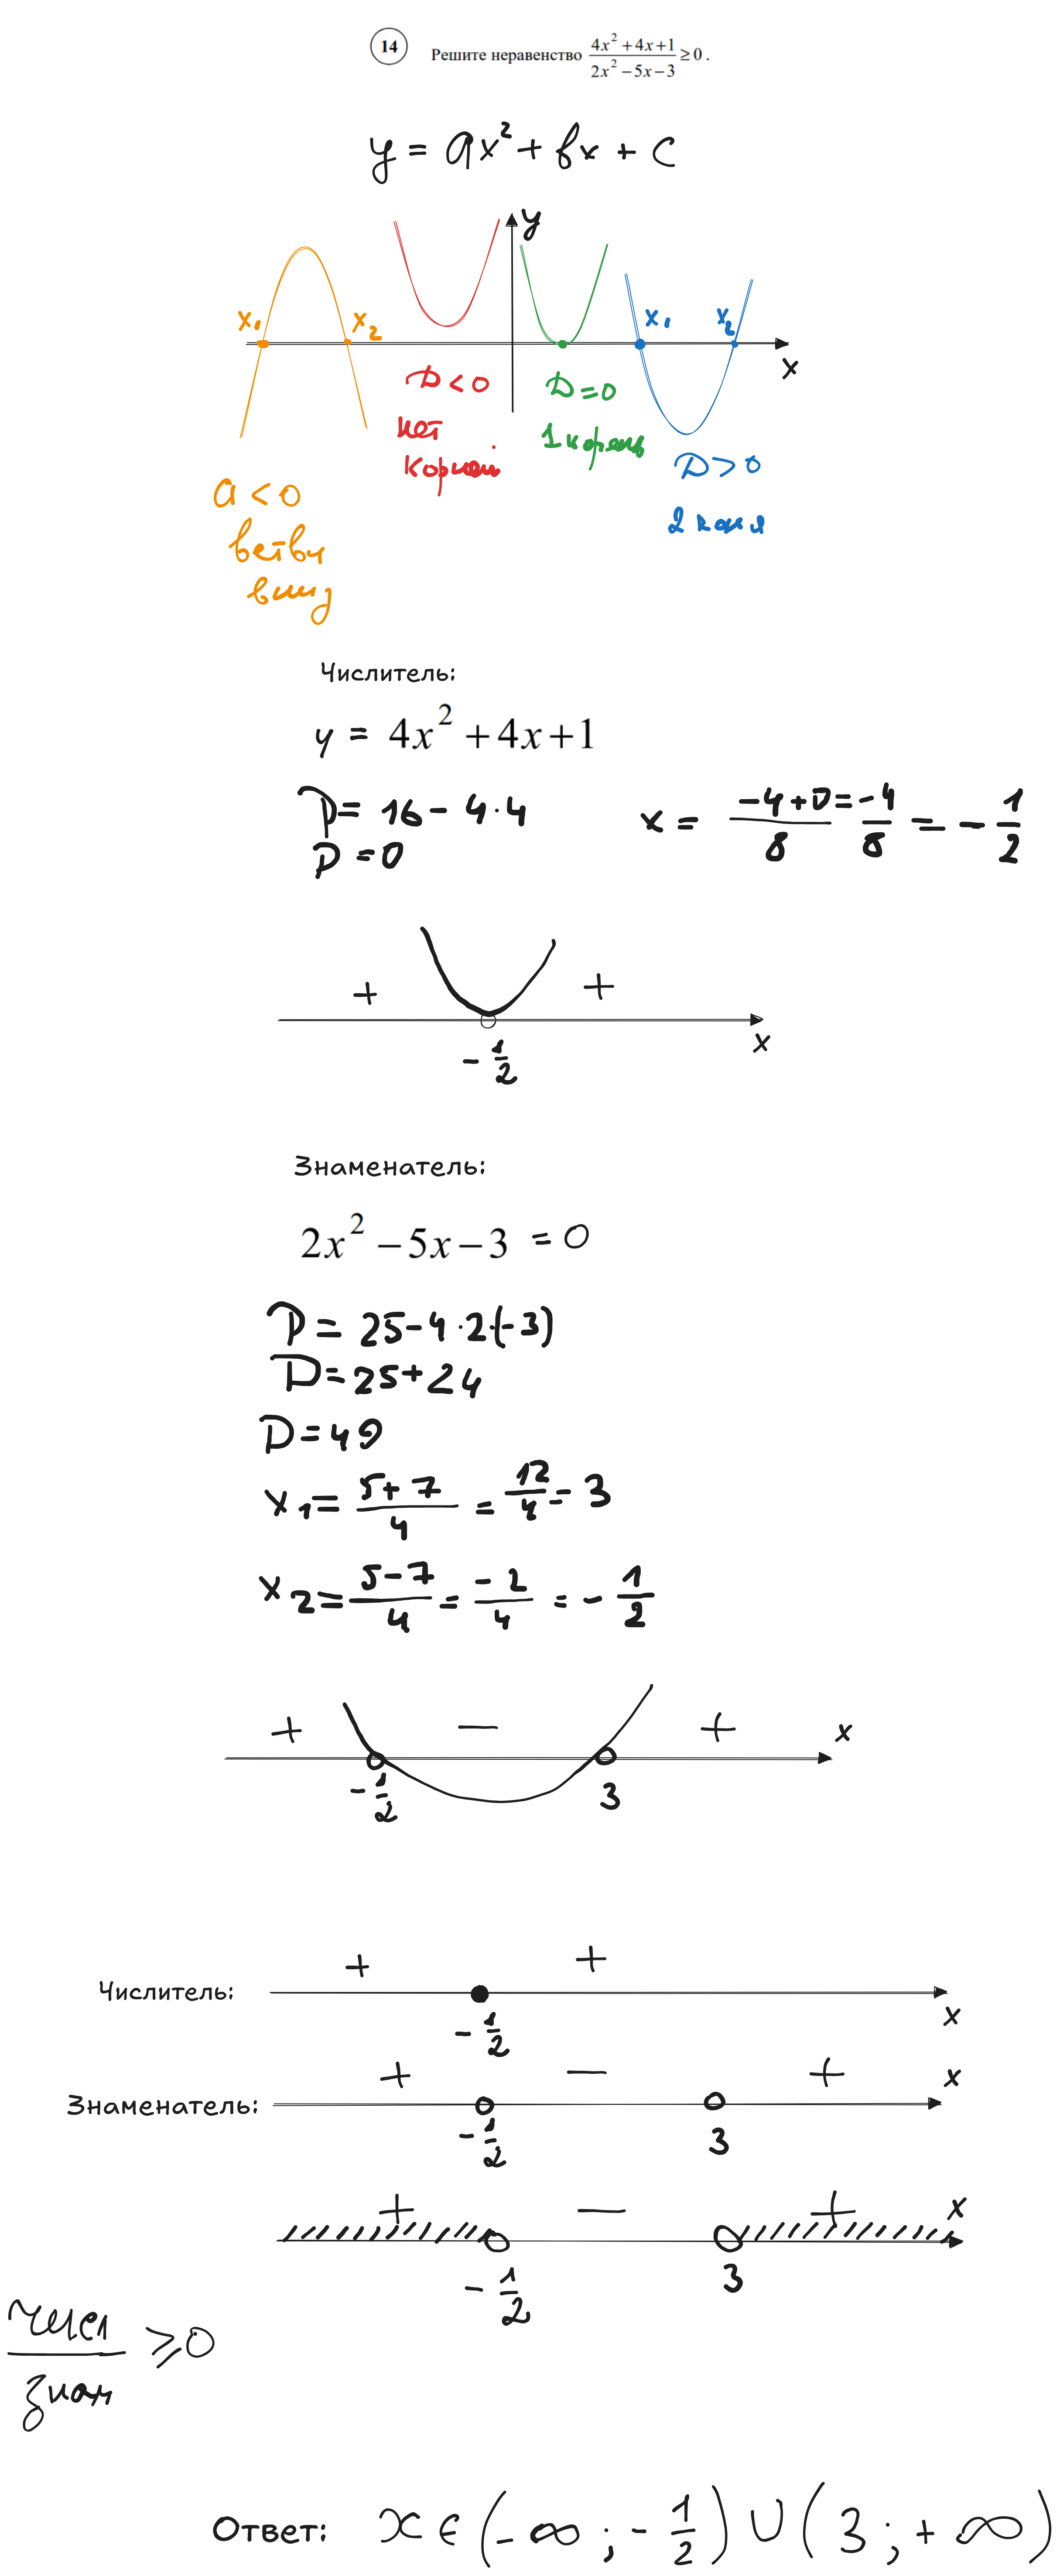 14 Решите неравенство (4x² + 4x + 1)/(2x² − 5x − 3) ≥ 0 .
y = ax² + bx + c
y
x₁ x₂ x₁ x₂
x
D < 0 D = 0
нет 1 корень
корней D > 0
a < 0 2
ветви
вниз
Числитель:
y = 4x² + 4x + 1
D = 16 − 4·4
D = 0
x = (−4+0)/8 = −4/8 = −1/2
+ +
−1/2 x
Знаменатель:
2x² − 5x − 3 = 0
D = 25 − 4·2(−3)
D = 25 + 24
D = 49
x₁ = (5+7)/4 = 12/4 = 3
x₂ = (5−7)/4 = −2/4 = −1/2
+ − + x
−1/2 3
+ +
Числитель: x
−1/2
+ − + x
Знаменатель:
−1/2 3
+ − + x
−1/2 3
числ/знам ≥ 0
Ответ: x ∈ (−∞ ; −1/2) ∪ (3 ; +∞)